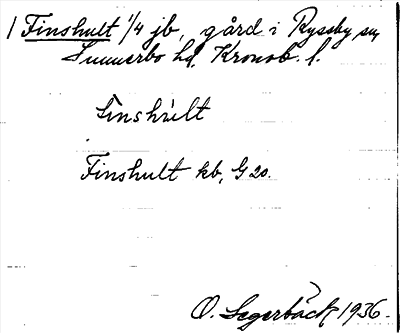 1 Finshult 1/4 jb, gård i Ryssby sn,
Sunnerbo hd, Kronob. l.
Finshult kb, G 20.
O. Segerbäck 1936.